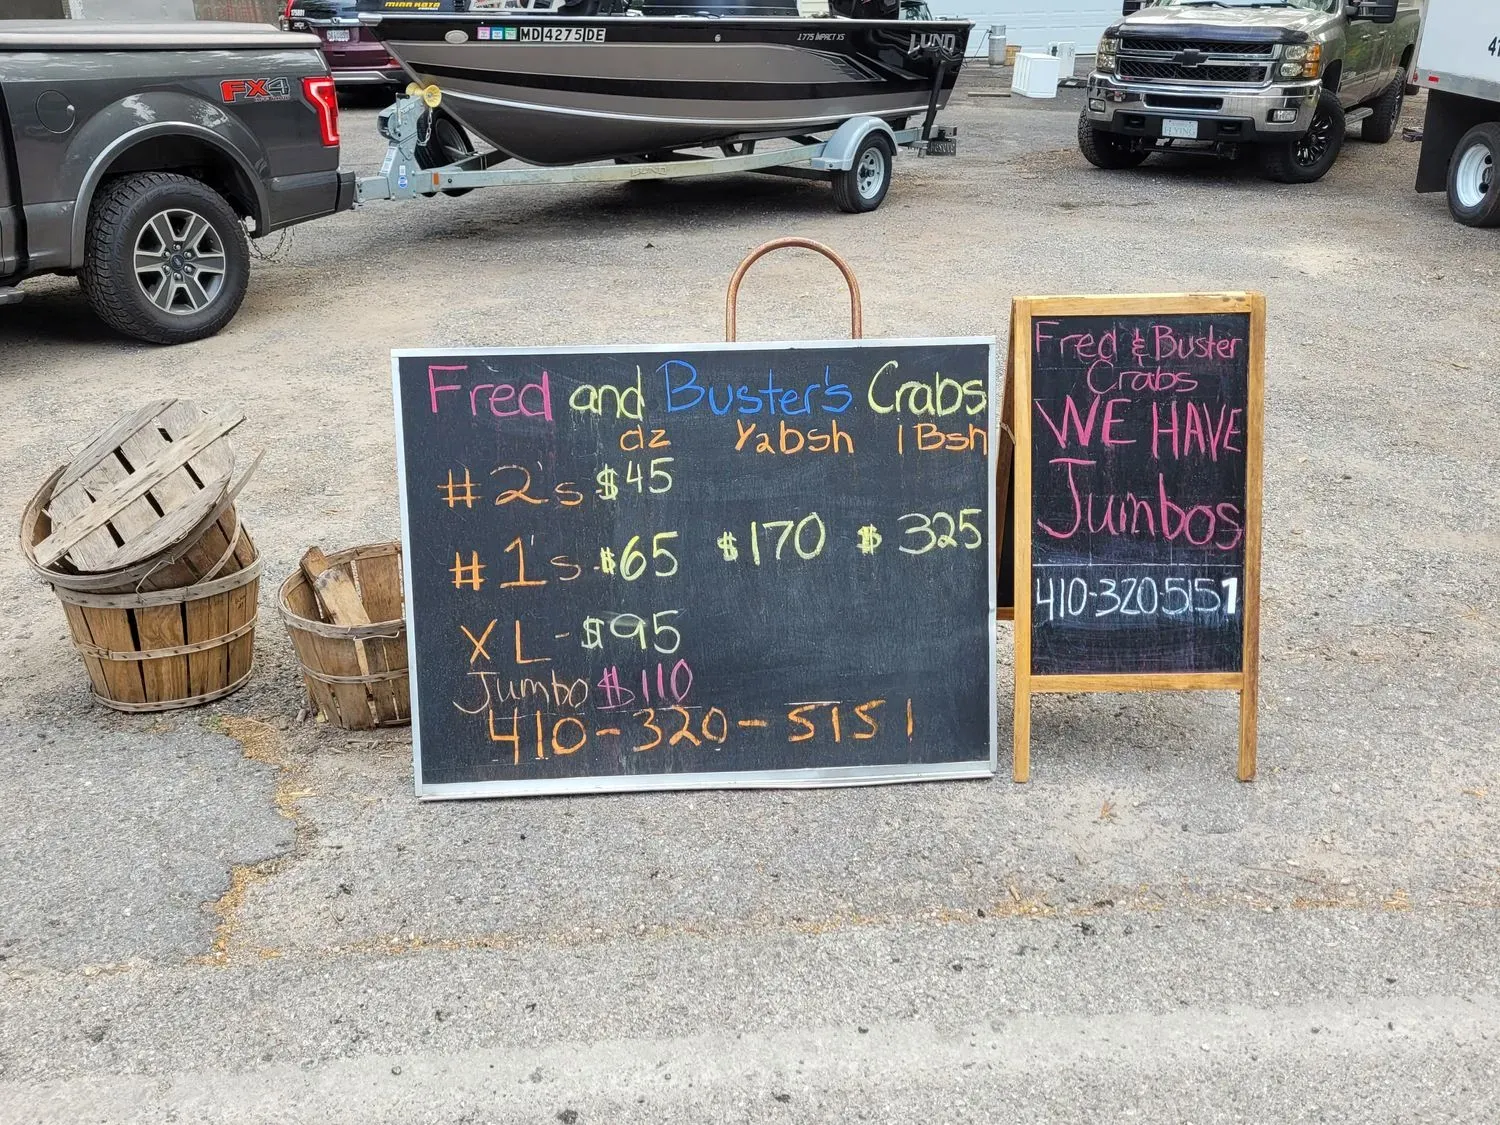 MINN KOTA
FX4
MD 4275 DE
1775 IMPACT XS
LUND
FLYING
Fred and Buster's Crabs
dz ½bsh 1Bsh
#2's $45
#1's $65 $170 $325
XL - $95
Jumbo $110
410-320-5151
Fred & Buster
Crabs
WE HAVE
Jumbos
410-320-5151